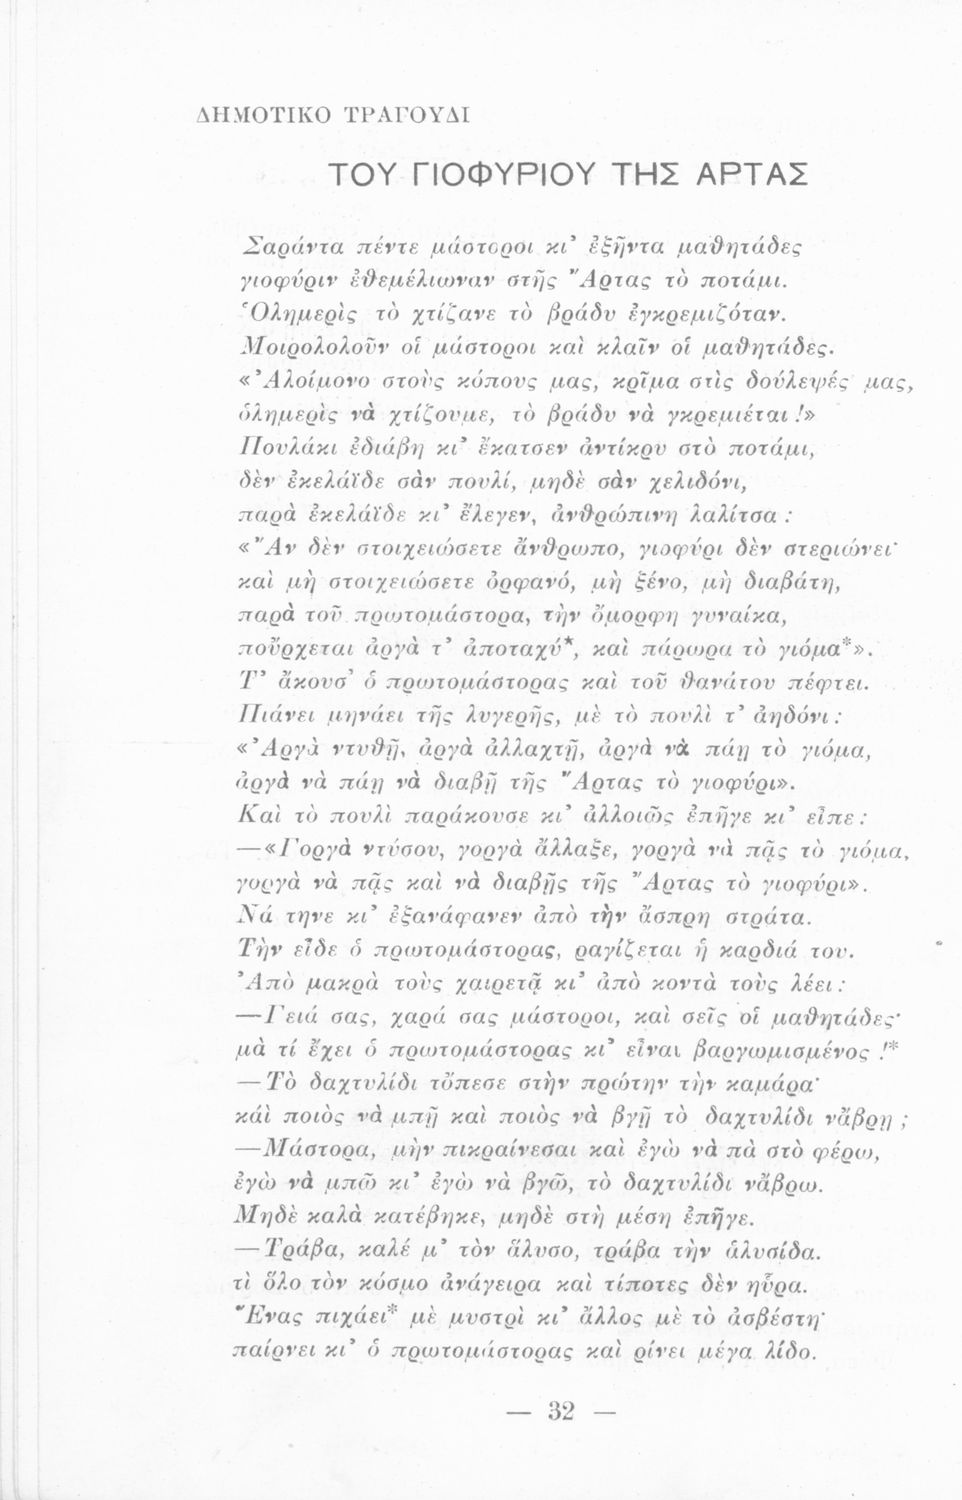 ΔΗΜΟΤΙΚΟ ΤΡΑΓΟΥΔΙ
ΤΟΥ ΓΙΟΦΥΡΙΟΥ ΤΗΣ ΑΡΤΑΣ
Σαράντα πέντε μάστοροι κι’ ἑξῆντα μαθητάδες
γιοφύριν ἐθεμέλιωναν στῆς Ἄρτας τὸ ποτάμι.
Ὁλημερὶς τὸ χτίζανε τὸ βράδυ ἐγκρεμιζόταν.
Μοιρολολοῦν οἱ μάστοροι καὶ κλαῖν οἱ μαθητάδες.
«Ἀλοίμονο στοὺς κόπους μας, κρῖμα στὶς δούλεψές μας,
ὁλημερὶς νὰ χτίζουμε, τὸ βράδυ νὰ γκρεμιέται!»
Πουλάκι ἐδιάβη κι’ ἔκατσεν ἀντίκρυ στὸ ποτάμι,
δὲν ἐκελάϊδε σὰν πουλί, μηδὲ σὰν χελιδόνι,
παρὰ ἐκελάϊδε κι’ ἔλεγεν, ἀνθρώπινη λαλίτσα :
«Ἂν δὲν στοιχειώσετε ἄνθρωπο, γιοφύρι δὲν στεριώνει·
καὶ μὴ στοιχειώσετε ὀρφανό, μὴ ξένο, μὴ διαβάτη,
παρὰ τοῦ πρωτομάστορα, τὴν ὄμορφη γυναίκα,
ποὔρχεται ἀργὰ τ’ ἀποταχύ*, καὶ πάρωρα τὸ γιόμα*».
Τ’ ἄκουσ’ ὁ πρωτομάστορας καὶ τοῦ θανάτου πέφτει.
Πιάνει μηνάει τῆς λυγερῆς, μὲ τὸ πουλὶ τ’ ἀηδόνι :
«Ἀργὰ ντυθῇ, ἀργὰ ἀλλαχτῇ, ἀργὰ νὰ πάῃ τὸ γιόμα,
ἀργὰ νὰ πάῃ νὰ διαβῇ τῆς Ἄρτας τὸ γιοφύρι».
Καὶ τὸ πουλὶ παράκουσε κι’ ἀλλοιῶς ἐπῆγε κι’ εἶπε :
—«Γοργὰ ντύσου, γοργὰ ἄλλαξε, γοργὰ νὰ πᾷς τὸ γιόμα,
γοργὰ νὰ πᾷς καὶ νὰ διαβῇς τῆς Ἄρτας τὸ γιοφύρι».
Νά τηνε κι’ ἐξανάφανεν ἀπὸ τὴν ἄσπρη στράτα.
Τὴν εἶδε ὁ πρωτομάστορας, ραγίζεται ἡ καρδιά του.
Ἀπὸ μακρὰ τοὺς χαιρετᾷ κι’ ἀπὸ κοντὰ τοὺς λέει :
—Γειά σας, χαρά σας μάστοροι, καὶ σεῖς οἱ μαθητάδες·
μὰ τί ἔχει ὁ πρωτομάστορας κι’ εἶναι βαργωμισμένος !*
— Τὸ δαχτυλίδι τὄπεσε στὴν πρώτην τὴν καμάρα·
κάὶ ποιὸς νὰ μπῇ καὶ ποιὸς νὰ βγῇ τὸ δαχτυλίδι νἄβρῃ ;
—Μάστορα, μὴν πικραίνεσαι καὶ ἐγὼ νὰ πὰ στὸ φέρω,
ἐγὼ νὰ μπῶ κι’ ἐγὼ νὰ βγῶ, τὸ δαχτυλίδι νἄβρω.
Μηδὲ καλὰ κατέβηκε, μηδὲ στὴ μέση ἐπῆγε.
— Τράβα, καλέ μ’ τὸν ἅλυσο, τράβα τὴν ἁλυσίδα.
τὶ ὅλο τὸν κόσμο ἀνάγειρα καὶ τίποτες δὲν ηὗρα.
Ἕνας πιχάει* μὲ μυστρὶ κι’ ἄλλος μὲ τὸ ἀσβέστη·
παίρνει κι’ ὁ πρωτομάστορας καὶ ρίνει μέγα λίδο.
— 32 —